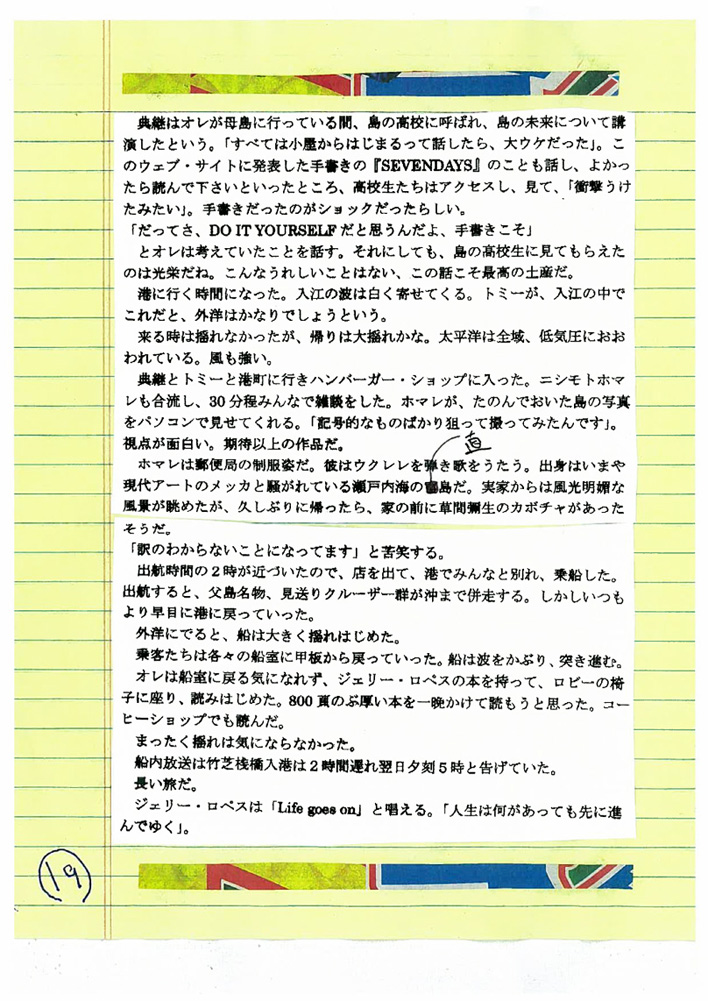 典継はオレが母島に行っている間、島の高校に呼ばれ、島の未来について講
演したという。「すべては小屋からはじまるって話したら、大ウケだった」。こ
のウェブ・サイトに発表した手書きの『SEVENDAYS』のことも話し、よかっ
たら読んで下さいといったところ、高校生たちはアクセスし、見て、「衝撃うけ
たみたい」。手書きだったのがショックだったらしい。
「だってさ、DO IT YOURSELFだと思うんだよ、手書きこそ」
とオレは考えていたことを話す。それにしても、島の高校生に見てもらえた
のは光栄だね。こんなうれしいことはない、この話こそ最高の土産だ。
港に行く時間になった。入江の波は白く寄せてくる。トミーが、入江の中で
これだと、外洋はかなりでしょうという。
来る時は揺れなかったが、帰りは大揺れかな。太平洋は全域、低気圧におお
われている。風も強い。
典継とトミーと港町に行きハンバーガー・ショップに入った。ニシモトホマ
レも合流し、30分程みんなで雑談をした。ホマレが、たのんでおいた島の写真
をパソコンで見せてくれる。「記号的なものばかり狙って撮ってみたんです」。
視点が面白い。期待以上の作品だ。
直
ホマレは郵便局の制服姿だ。彼はウクレレを弾き歌をうたう。出身はいまや
現代アートのメッカと騒がれている瀬戸内海の島だ。実家からは風光明媚な
風景が眺めたが、久しぶりに帰ったら、家の前に草間彌生のカボチャがあった
そうだ。
「訳のわからないことになってます」と苦笑する。
出航時間の2時が近づいたので、店を出て、港でみんなと別れ、乗船した。
出航すると、父島名物、見送りクルーザー群が沖まで併走する。しかしいつも
より早目に港に戻っていった。
外洋にでると、船は大きく揺れはじめた。
乗客たちは各々の船室に甲板から戻っていった。船は波をかぶり、突き進む。
オレは船室に戻る気になれず、ジェリー・ロペスの本を持って、ロビーの椅
子に座り、読みはじめた。800頁のぶ厚い本を一晩かけて読もうと思った。コー
ヒーショップでも読んだ。
まったく揺れは気にならなかった。
船内放送は竹芝桟橋入港は2時間遅れ翌日夕刻5時と告げていた。
長い旅だ。
ジェリー・ロペスは「Life goes on」と唱える。「人生は何があっても先に進
んでゆく」。
19